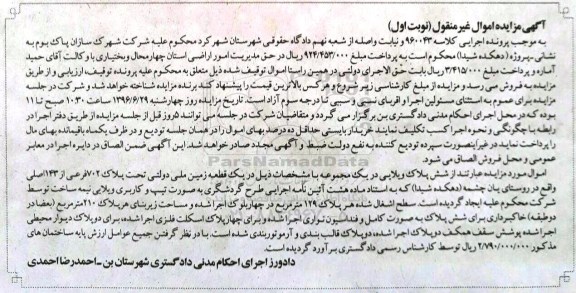 آگهی مزایده اموال غیرمنقول (نوبت اول)
به موجب پرونده اجرایی کلاسه ۹۶۰۰۴۳ و نیابت واصله از شعبه نهم دادگاه حقوقی شهرستان شهرکرد محکوم علیه شرکت شهرک سازان پاک بوم به
نشانی -پروژه (دهکده شیدا) محکوم است به پرداخت مبلغ ۹۲۴/۴۵۳/۰۰۰ ریال در حق مدیریت امور اراضی استان چهارمحال وبختیاری با وکالت آقای حمید
آماره و پرداخت مبلغ ۳/۴۱۵/۰۰۰ ریال بابت حق الاجرای دولتی در همین راستا اموال توقیف شده ذیل متعلق به محکوم علیه پرونده توقیف، ارزیابی و از طریق
مزایده به فروش می رسد و مزایده از مبلغ کارشناسی زیر شروع و هرکس بالاترین قیمت را پیشنهاد کند برنده مزایده شناخته خواهد شد و شرکت در جلسه
مزایده برای عموم به استثنای مسئولین اجرا و اقربای نسبی و سببی تا درجه سوم آزاد است. تاریخ مزایده روز چهارشنبه ۱۳۹۶/۶/۲۹ ساعت ۱۰:۳۰ صبح تا ۱۱
بوده که در محل اجرای احکام مدنی دادگستری بن برگزار می گردد و متقاضیان شرکت در جلسه می توانند ۵روز قبل از جلسه مزایده از طریق دفتر اجرا در
رابطه با چگونگی و نحوه اجرا کسب تکلیف نمایند خریدار بایستی حداقل ده درصد بهای اموال را در همان جلسه تودیع و در ظرف یکماه باقیمانده بهای مال
را پرداخت نماید در غیراینصورت سپرده تودیع کننده به نفع دولت ضبط و آگهی مجدد صادر خواهد شد. این آگهی ضمن الصاق در دایره اجرا در معابر
عمومی و محل فروش الصاق می شود.
اموال مورد مزایده عبارتند از شش پلاک ویلایی در یک مجموعه با مشخصات ذیل در یک قطعه زمین ملی دولتی تحت پلاک ۷۰۲فرعی از ۱۴۳اصلی
واقع در روستای یان چشمه (دهکده شیدا) که به استناد ماده هشت آئین نامه اجرایی طرح گردشگری به صورت تیپ و کاربری ویلایی نیمه ساخت توسط
شرکت محکوم علیه ایجاد گردیده است. سطح اشغال شده هر پلاک ۱۷۹ مترمربع در چهاربلوک اجرا شده و مساحت زیربنای هر پلاک ۲۱۰مترمربع (بعضا در
دوطبقه) خاکبرداری برای شش پلاک به صورت کامل و فنداسیون نواری اجرا شده، برای چهارپلاک اسکلت فلزی اجرا شده، برای دو پلاک دیوار محیطی
اجرا شده پوشش سقف همکف دو پلاک اجرا شده، دوپلاک قالب بندی و آرموتوربندی شده است. با در نظر گرفتن جمیع عوامل ارزش پایه ساختمان های
مذکور ۲/۷۹۰/۰۰۰/۰۰۰ ریال توسط کارشناس رسمی دادگستری برآورد گردیده است.
دادورز اجرای احکام مدنی دادگستری شهرستان بن -احمدرضا احمدی
ParsNamadData